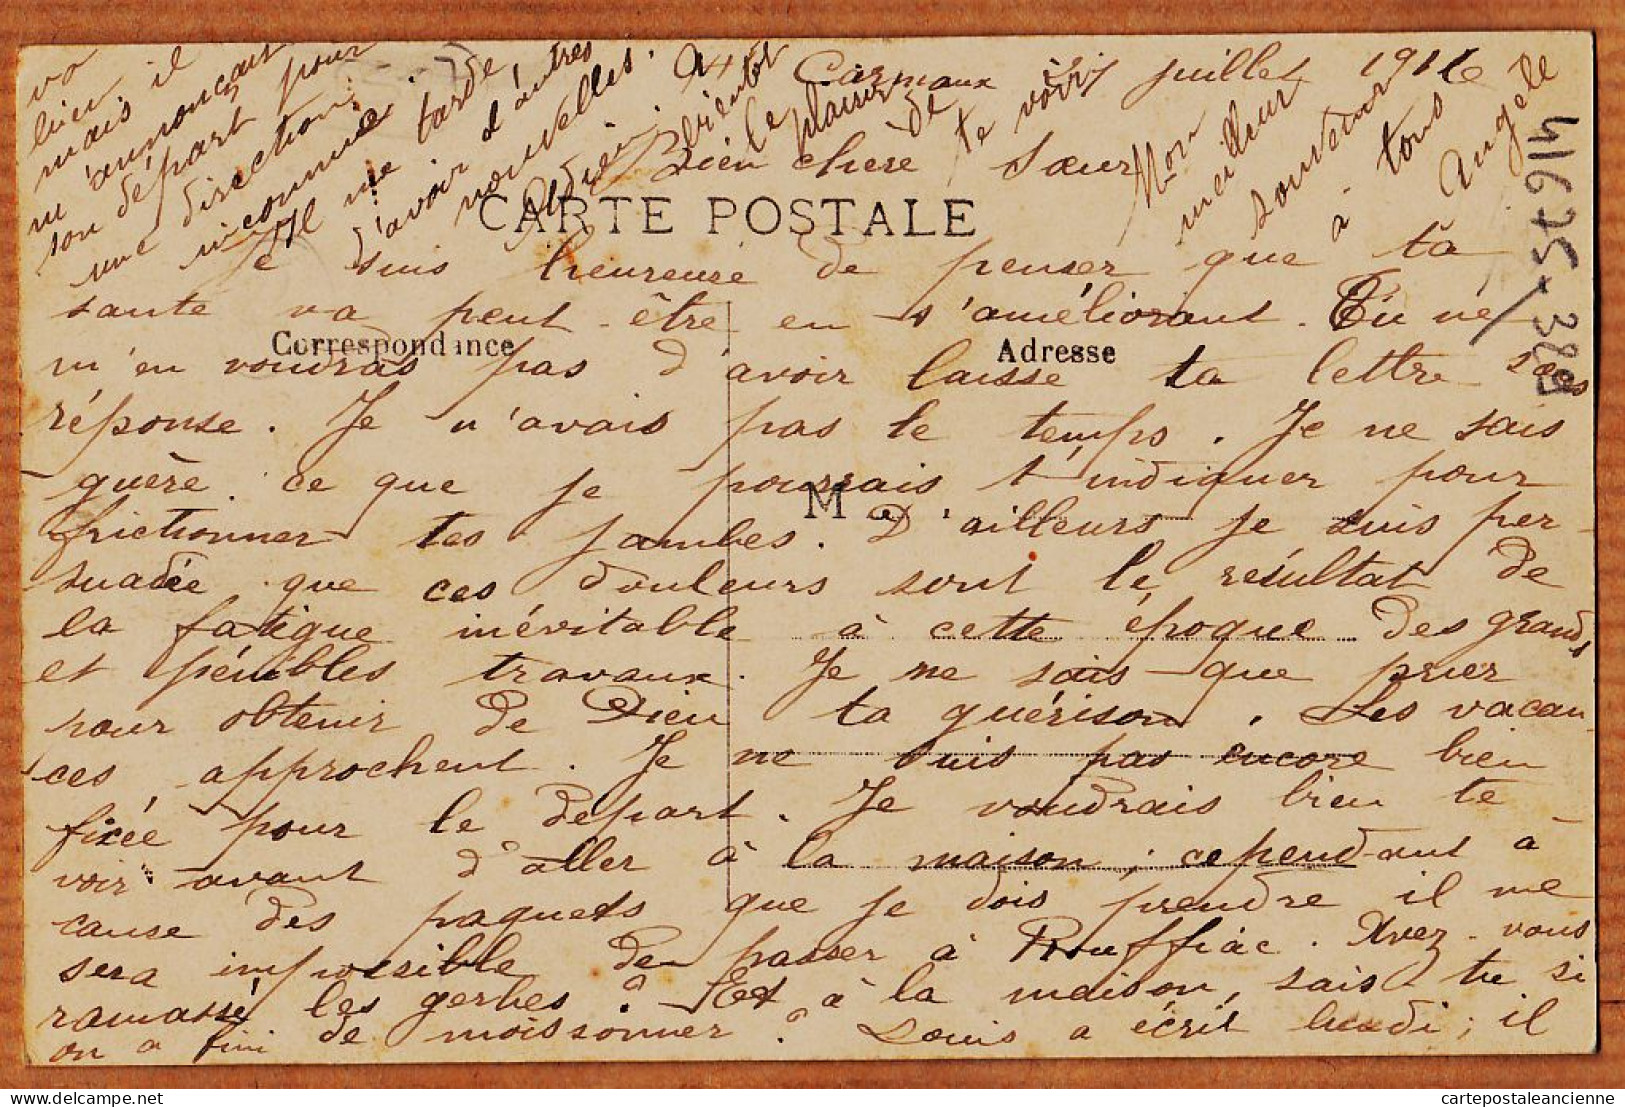 Carmaux juillet 191
Bien chère Sœur
CARTE POSTALE
Je suis heureuse de penser que ta
sante va peut-être en s'améliorant. Tu ne
Correspondance
Adresse
m'en voudras pas d'avoir laisse ta lettre sans
réponse. Je n'avais pas le temps. Je ne sais
guère ce que je pourrais t'indiquer pour
M
frictionner tes jambes. D'ailleurs je suis per-
suadée que ces douleurs sont le résultat de
la fatigue inévitable à cette époque des grands
et pénibles travaux. Je ne sais que prier
pour obtenir de Dieu ta guérison. Les vacan-
ces approchent. Je ne suis pas encore bien
fixée pour le départ. Je voudrais bien te
voir avant d'aller à la maison; cependant à
cause des paquets que je dois prendre il me
sera impossible de passer à Rouffiac. Avez-vous
ramassé les gerbes? Et à la maison, sais-tu si
on a fini de moissonner? Louis a écrit lundi; il
va
bien il
mais il
m'annonçait
son départ pour
une direction
inconnue.
Il me tarde
d'avoir d'autres
nouvelles.
Adieu. A
bientôt
le
plaisir
de
te voir
Mon
meilleur
souvenir
à tous
Angele
41675-389
cartepostaleancienne
www.delcampe.net